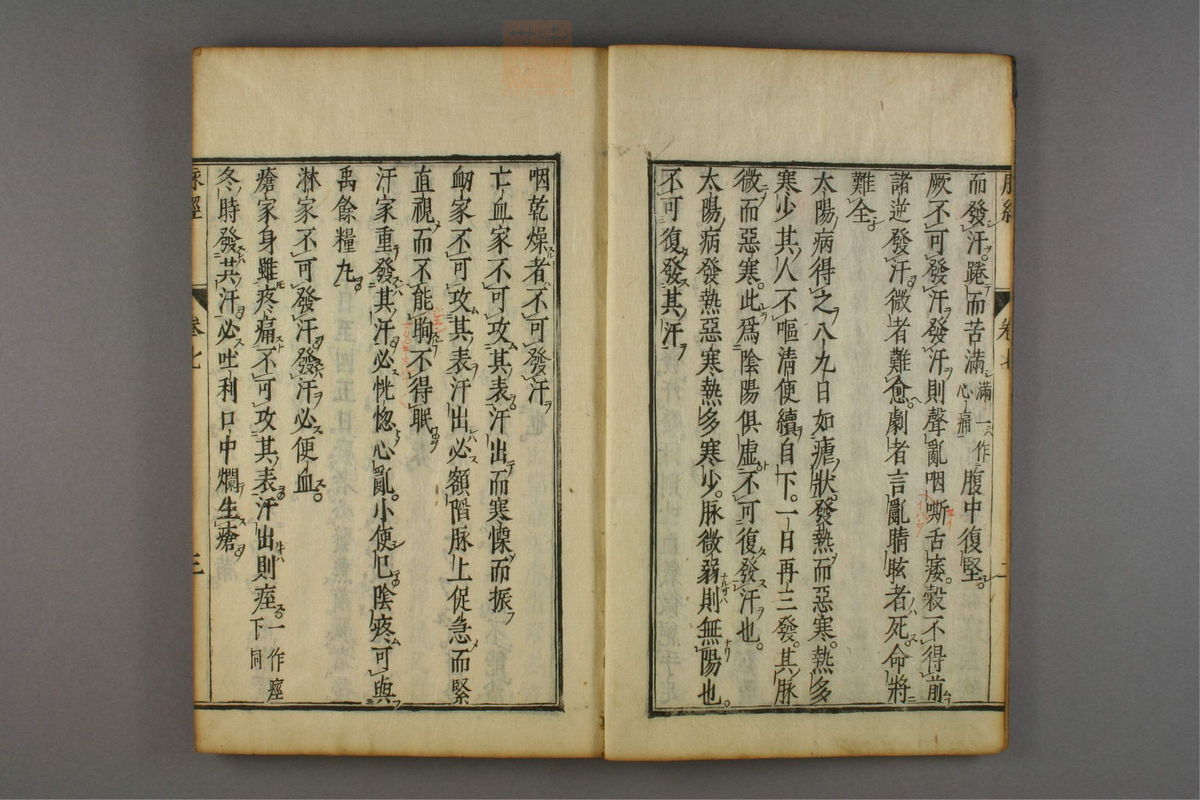 而發汗踡而苦滿滿一作心痛腹中復堅
厥不可發汗發汗則聲亂咽嘶舌痿穀不得前
諸逆發汗微者難愈劇者言亂睛眩者死命將
難全
太陽病得之八九日如瘧狀發熱而惡寒熱多
寒少其人不嘔清便續自下一日再三發其脉
微而惡寒此爲陰陽俱虛不可復發汗也
太陽病發熱惡寒熱多寒少脉微弱則無陽也
不可復發其汗
咽乾燥者不可發汗
亡血家不可攻其表汗出而寒慄而振
衂家不可攻其表汗出必額䧟脉上促急而緊
直視而不能眴不得眠
汗家重發其汗必恍惚心亂小便已陰疼可與
禹餘糧丸
淋家不可發汗發汗必便血
瘡家身雖疼痛不可攻其表汗出則痓一作痙下同
冬時發其汗必吐利口中爛生瘡
脉經 卷七 三